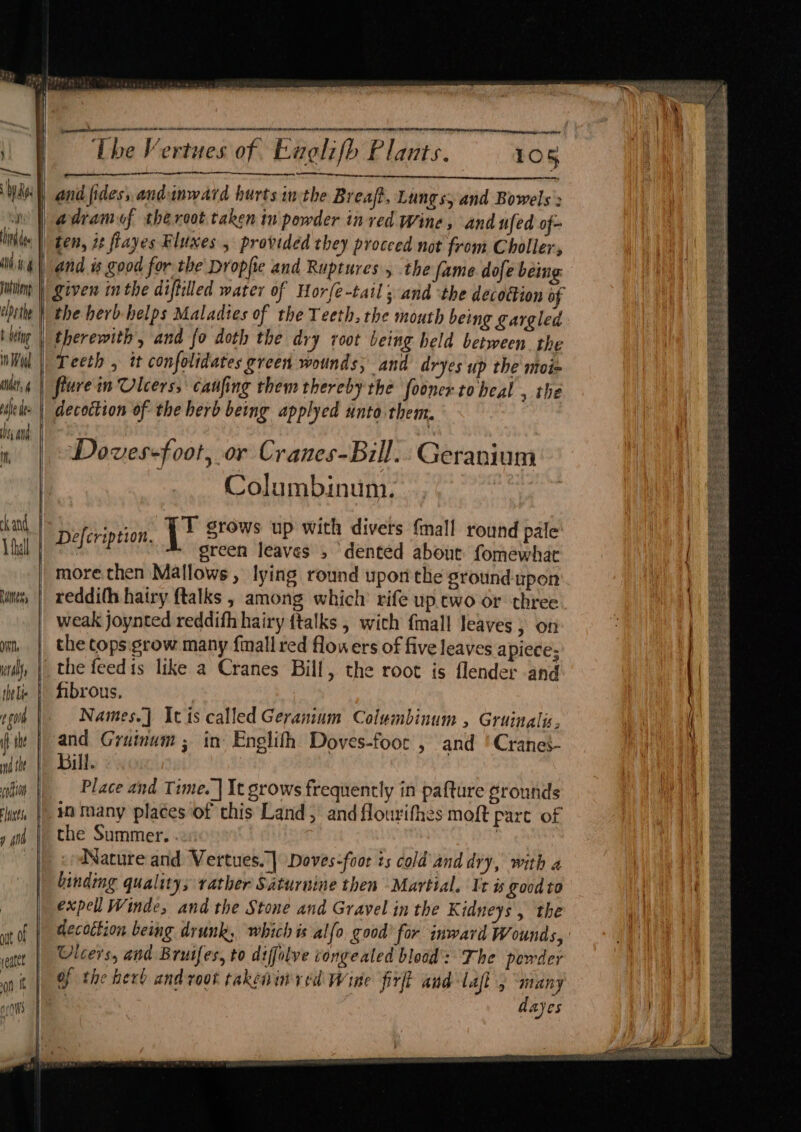 The Vertues of Engliſh Plants. 105
and ſides, and inward hurts in the Breaſt, Lungs, and Bowels:
a dram of the root taken in powder in red Wine, and uſed of-
ten, it ſtayes Fluxes, provided they proceed not from Choller,
and is good for the Dropſie and Ruptures, the ſame doſe being
given in the diſtilled water of Horſe-tail; and the decoction of
the herb helps Maladies of the Teeth, the mouth being gargled
therewith, and ſo doth the dry root being held between the
Teeth, it conſolidates green wounds, and dryes up the moi-
ſture in Ulcers, cauſing them thereby the ſooner to heal, the
decoction of the herb being applyed unto them.
Doves-foot, or Cranes-Bill. Geranium
Columbinum.
Deſcription. IT grows up with divers ſmall round pale
green leaves, dented about ſomewhat
more then Mallows, lying round upon the ground upon
reddiſh hairy ſtalks, among which riſe up two or three
weak joynted reddiſh hairy ſtalks, with ſmall leaves, on
the tops grow many ſmall red flowers of five leaves apiece;
the ſeed is like a Cranes Bill, the root is ſlender and
fibrous.
Names.] It is called Geranium Columbinum, Gruinalis,
and Gruinum; in Engliſh Doves-foot, and Cranes-
Bill.
Place and Time.] It grows frequently in paſture grounds
in many places of this Land, and flouriſhes moſt part of
the Summer.
Nature and Vertues.] Doves-foot is cold and dry, with a
binding quality, rather Saturnine then Martial. It is good to
expell Winde, and the Stone and Gravel in the Kidneys, the
decoction being drunk, which is alſo good for inward Wounds,
Ulcers, and Bruiſes, to diſſolve congealed blood: The powder
of the herb and root taken in red Wine firſt and laſt, many
dayes